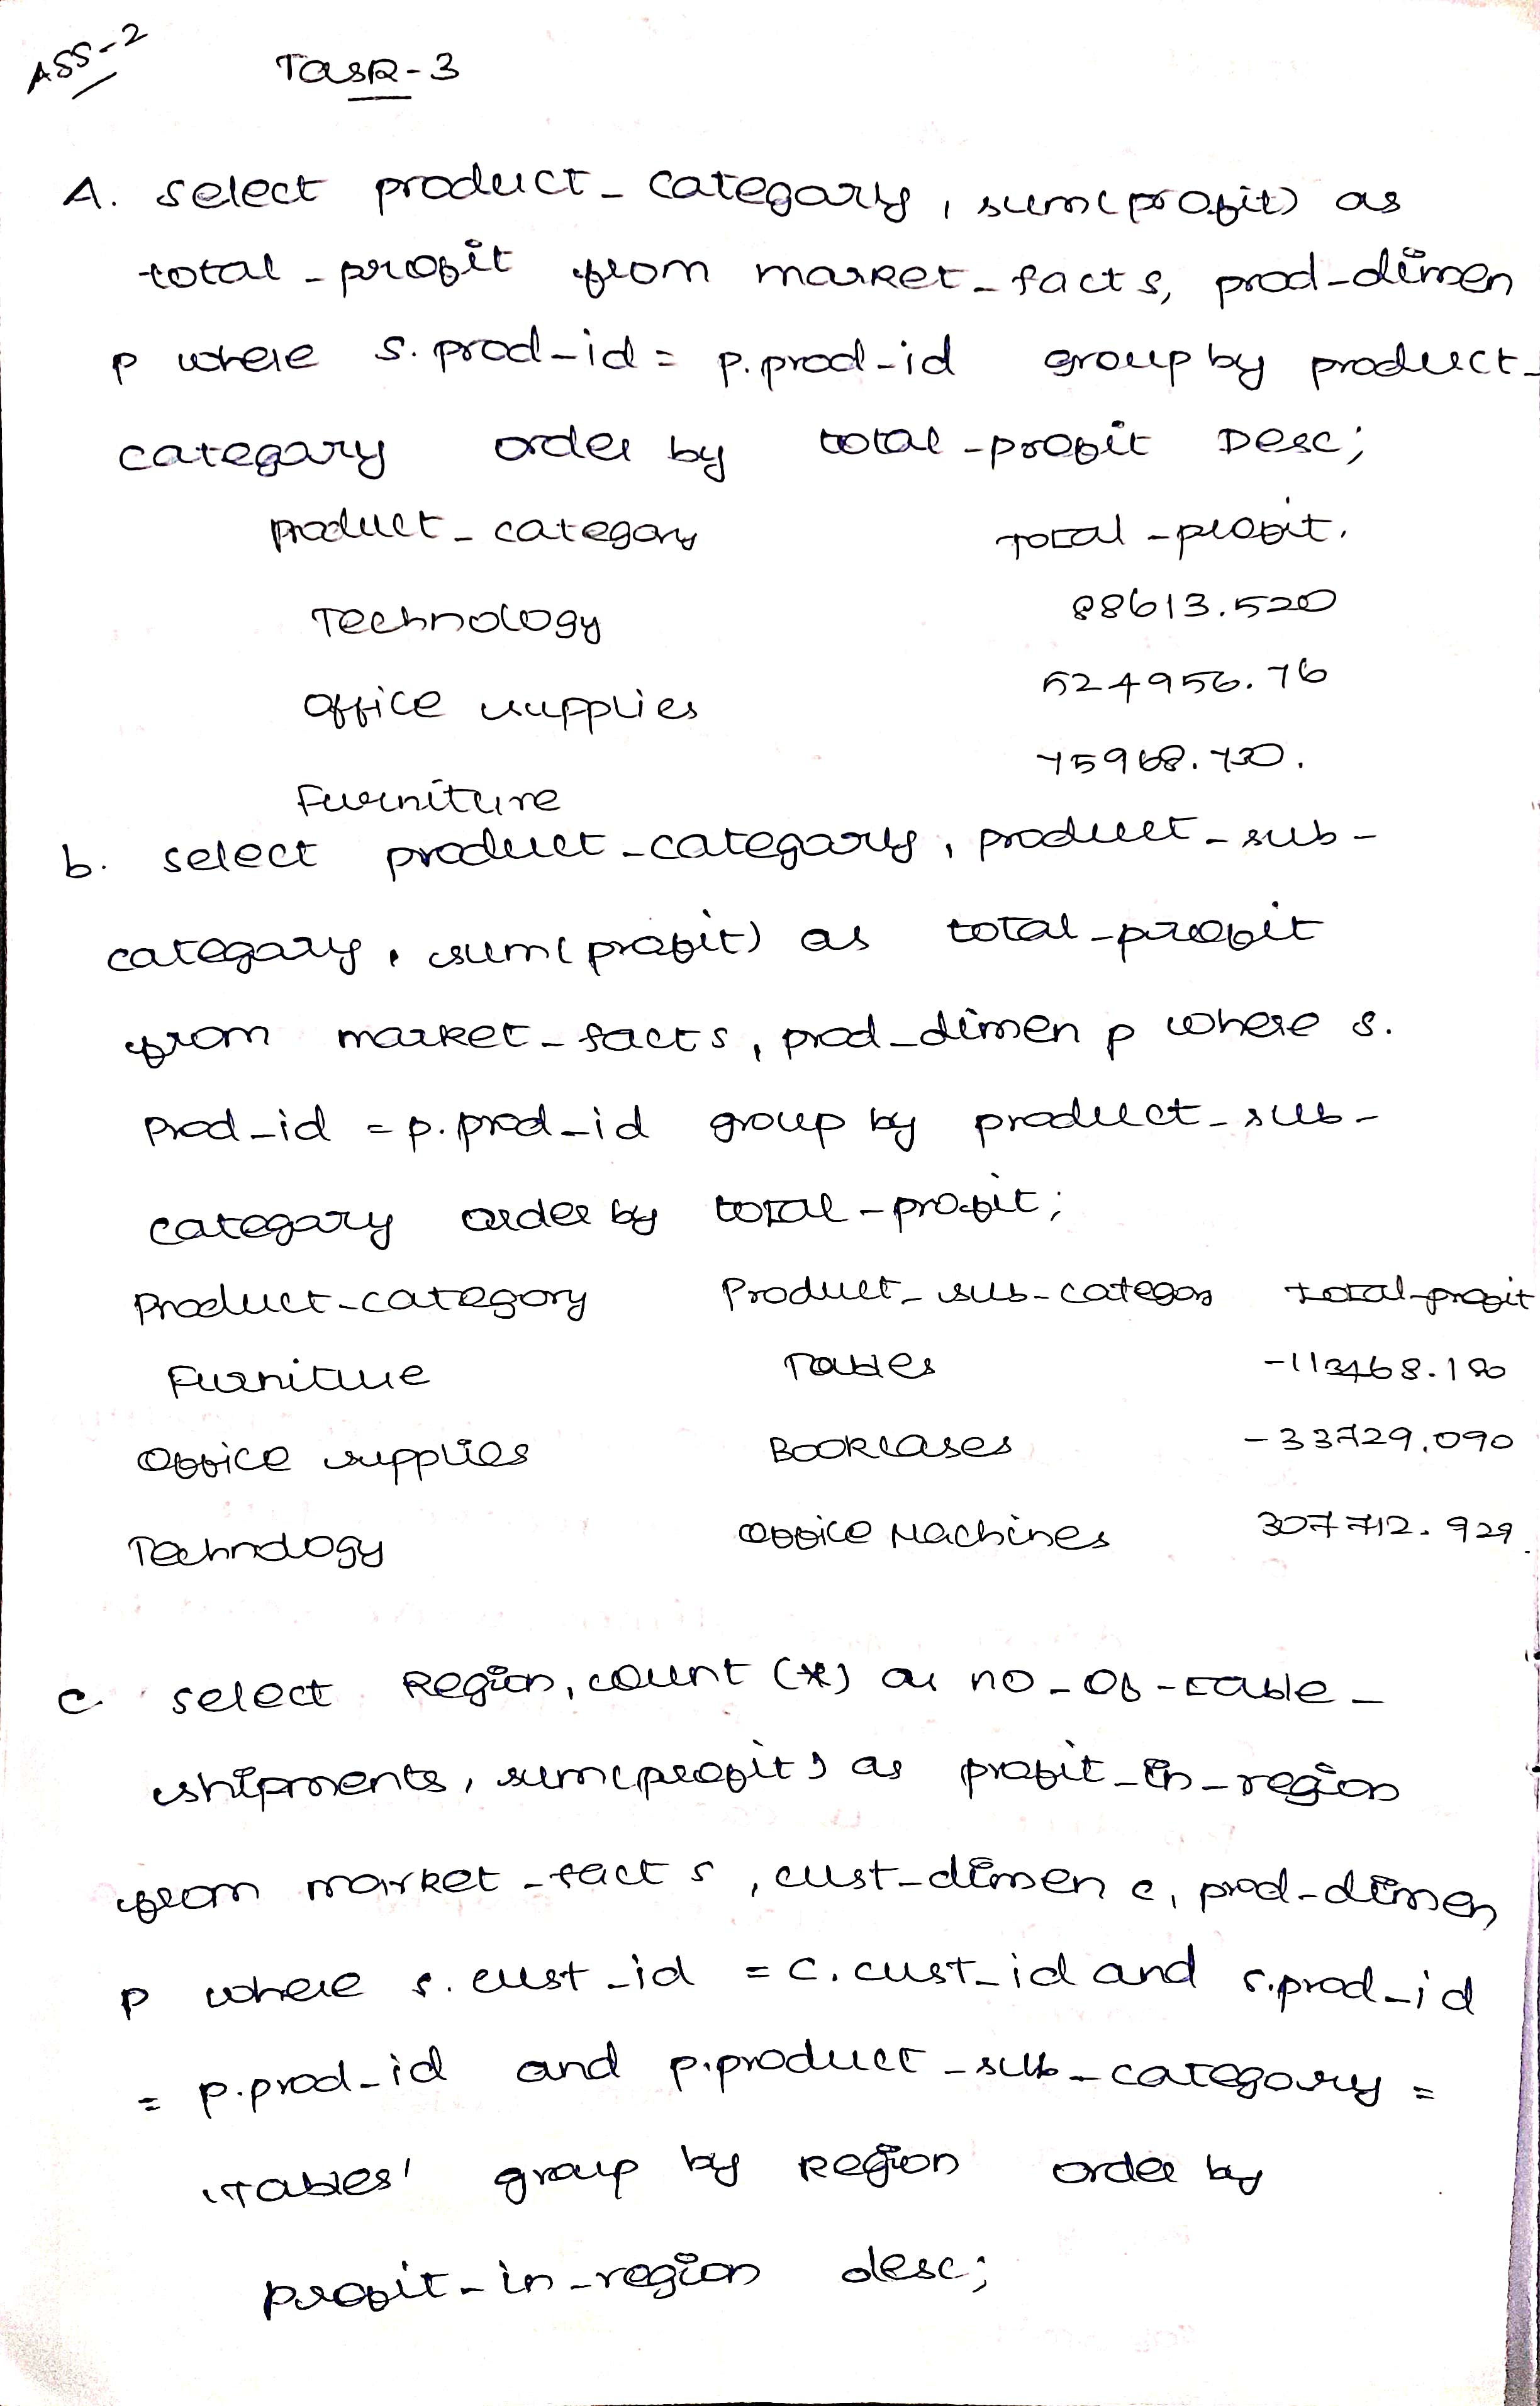 ASS-2
Task-3
A. select product_category, sum(profit) as
total_profit from market_fact s, prod_dimen
p where s.prod_id = p.prod_id group by product_
category order by total_profit Desc;
product_category Total_profit.
Technology 88613.520
office supplies 524956.76
Furniture 75968.730.
b. select product_category, product_sub_
category, sum(profit) as total_profit
from market_fact s, prod_dimen p where s.
prod_id = p.prod_id group by product_sub_
category order by total_profit;
product_category Product_sub_categoy total_profit
Furniture Tables -113468.180
office supplies Bookcases -33729.090
Technology office Machines 307712.929
c. select Region, count (*) as no_of_table_
shipments, sum(profit) as profit_in_region
from market_fact s, cust_dimen c, prod_dimen
p where s.cust_id = c.cust_id and s.prod_id
= p.prod_id and p.product_sub_category =
'Tables' group by Region order by
profit_in_region desc;